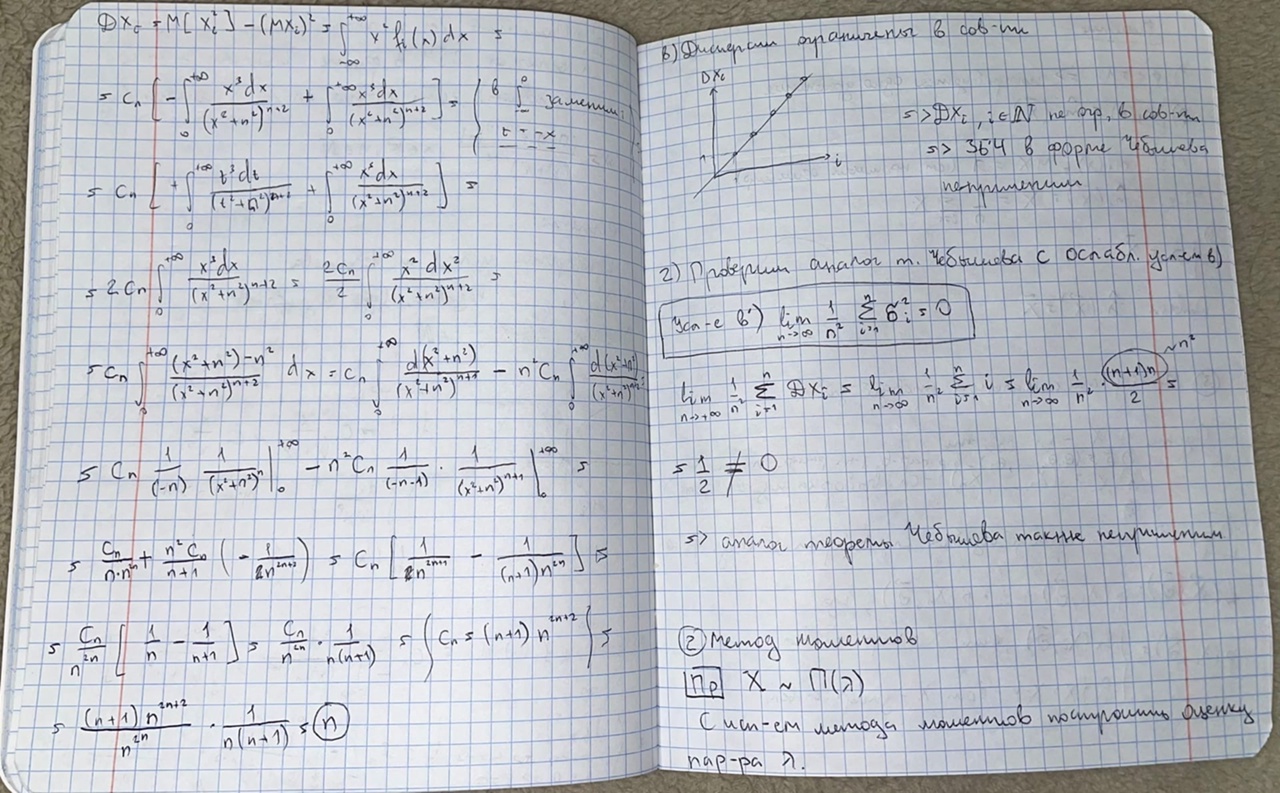 DXᵢ = M[Xᵢ²] - (MXᵢ)² = ∫_{-∞}^{+∞} x² fᵢ(x) dx =
= Cₙ [ - ∫_0^{+∞} x³dx/(x²+n²)^{n+2} + ∫_0^{+∞} x³dx/(x²+n²)^{n+2} ] = ( в ∫^0 заменим: t = -x
= Cₙ [ + ∫_0^{+∞} t³dt/(t²+n²)^{n+2} + ∫_0^{+∞} x³dx/(x²+n²)^{n+2} ] =
= 2Cₙ ∫_0^{+∞} x³dx/(x²+n²)^{n+2} = 2Cₙ/2 ∫_0^{+∞} x² dx²/(x²+n²)^{n+2} =
= Cₙ ∫_0^{+∞} (x²+n²)-n²/(x²+n²)^{n+2} dx = Cₙ ∫_0^{+∞} d(x²+n²)/(x²+n²)^{n+1} - n²Cₙ ∫_0^{+∞} d(x²+n²)/(x²+n²)^{n+2}
= Cₙ 1/(-n) 1/(x²+n²)^n |_0^{+∞} - n²Cₙ 1/(-n-1) · 1/(x²+n²)^{n+1} |_0^{+∞} =
= Cₙ/(n·n^{2n}) + n²Cₙ/(n+1) (- 1/n^{2n+2}) = Cₙ [ 1/n^{2n+1} - 1/((n+1)n^{2n}) ] =
= Cₙ/n^{2n} [ 1/n - 1/(n+1) ] = Cₙ/n^{2n} · 1/(n(n+1)) = ( Cₙ = (n+1) n^{2n+2} ) =
= (n+1) n^{2n+2}/n^{2n} · 1/(n(n+1)) = n
в) Дисперсии ограничены в сов-ти
DXᵢ
i
=> DXᵢ, i∈N не огр. в сов-ти
=> ЗБЧ в форме Чебышева
неприменим
г) Проверим аналог т. Чебышева с ослабл. усл-ем в)
Усл-е в') lim_{n→∞} 1/n² ∑_{i=1}^n σᵢ² = 0
lim_{n→+∞} 1/n² ∑_{i=1}^n DXᵢ = lim_{n→∞} 1/n² ∑_{i=1}^n i = lim_{n→∞} 1/n² · (n+1)n/2 ~n² =
= 1/2 ≠ 0
=> аналог теоремы Чебышева также неприменим
② Метод моментов
Пр X ~ П(λ)
С исп-ем метода моментов построить оценку
пар-ра λ.